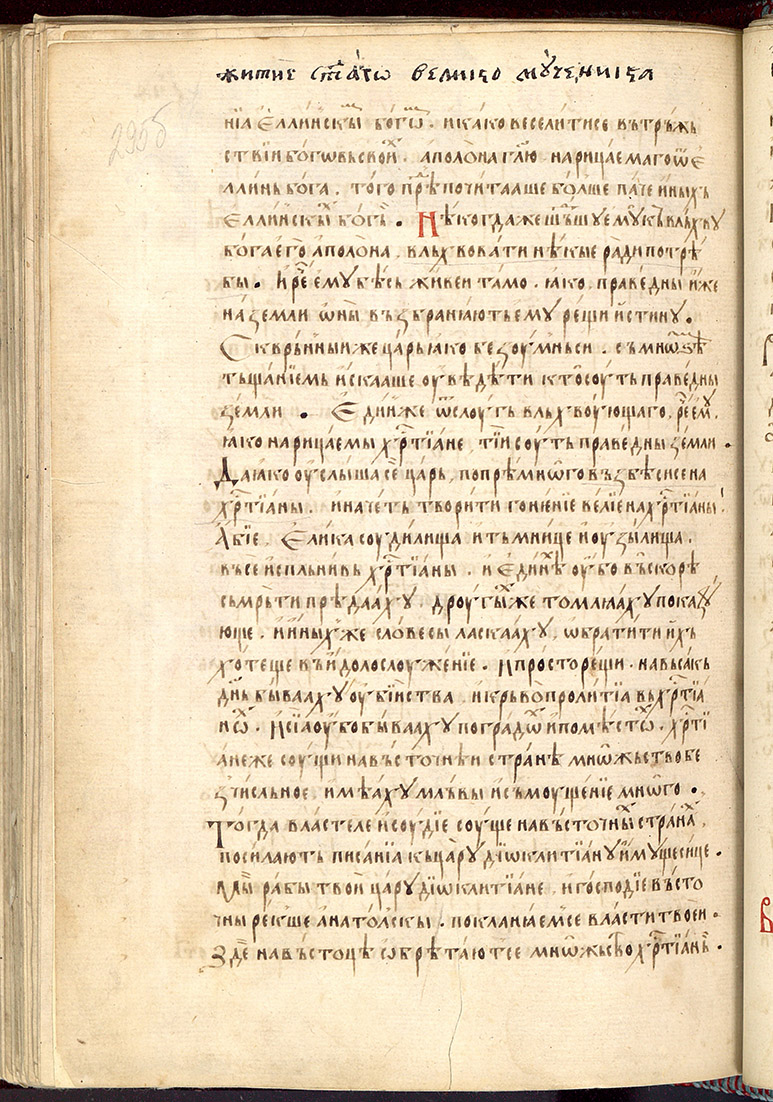 житїе ст҃аго великомꙋченика
295б
нїа Еллинскы́ⷯ бого́ⷨ. и како веселитисе въ тръжь
ствїи бѡ́говьскоⷨ. аполѡна гл҃ю нарицаемаго ѿ Е
ллинь бо́га. того прⷣѣпочитааше бо́лше па́че ины́хь
Еллинскыⷯ бо́гь. Нѣкогда же шⷣьшꙋ емꙋ къ влъхвꙋ
бо́га его̀ аполона, влъхвовати нѣкые ради потрѣ
бы. и реⷱ емꙋ бѣсь живеи тамо. ꙗко, праведны иже
на земли ѡ҆ны̀ възбранꙗють ему рещи истинꙋ.
Сквръныи же царь ꙗко безоумньи. съ мнѡзѣⷨ
тьщанїемь искааше оувѣдѣти кто̀ соуть праведны
земли. Едиⷩ же ѿ слоугь влъхвоующаго, реⷱ емꙋ̀,
ꙗко нарицаемы хрⷭтїа́не, тїи соуть праведны земли.
Да ꙗко оуслыша се царь, попрѣмнѡго възбѣси се на
хрⷭтїаны. и начеть творити гоненїе велїе на хрⷭтїаны̀.
Абїе, Елика соудилища и тьмнице и оузылища,
въсе испльнивь хрⷭтїаны. и Едины̀ оубо въскорѣ
съмрьти прѣдаахꙋ. дроугыⷯ же томлꙗахꙋ показꙋ
юще. и иныⷯ же словесы ласкаахꙋ, ѡбратити иⷯхь
хотеще въ идолослоуженїе. И просто рещи. на въсакь
дн҃ь бываахꙋ оубїиства, и кръвопролитїа вь хрⷭтїа
нѡⷯ. И сїа оубо бываахꙋ по градѡⷨ и по мѣстѡⷨ. хрⷭтї
ане же соущи на въсточнѣи странѣ мнѡжьство бе
зчисльное, имѣахꙋ млъвы и съмоущенїе мнѡго.
Тогда властеле и соудїе соуще на въсточныⷯ странаⷯ,
посилають писанїа къ царꙋ дїѡклитїанꙋ имꙋще сице.
Мы рабы твои царꙋ дїѡклитїане, и господїе въсто
чны рекше анатолскы. покланꙗем се власти твоеи.
Зде на въстоцѣ ѡбрѣтают се мнѡжьство хрⷭтїань.